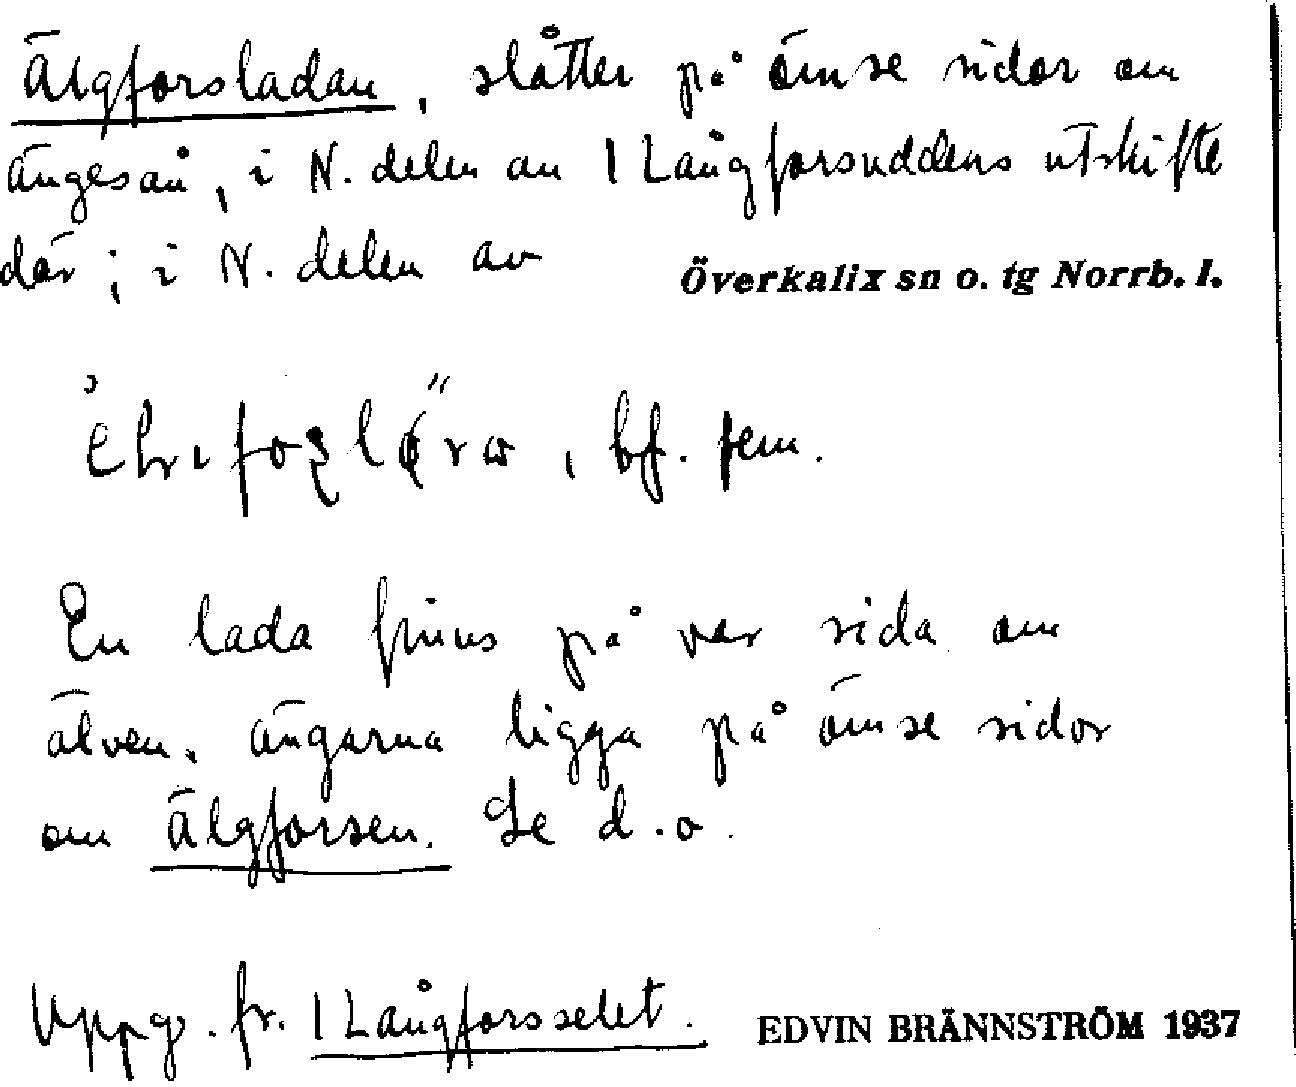 Älgforsladan, slåtter på ömse sidor om
ängesån, i N. delen av 1 Långforsuddens utskifte
där; i N. delen av Överkalix sn o. tg Norrb. l.
bf. fem.
En lada finns på var sida om
älven. ängarna ligga på ömse sidor
om Älgforsen. Se d.o.
Uppg. fr. 1 Långforsselet. EDVIN BRÄNNSTRÖM 1937